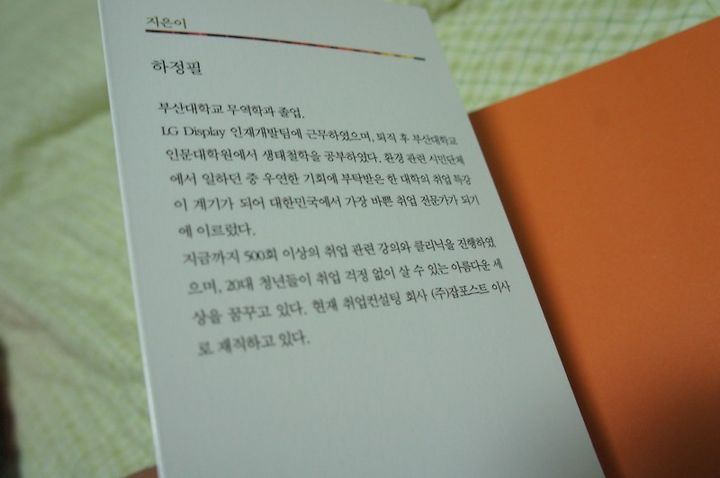 지은이
하정필
부산대학교 무역학과 졸업.
LG Display 인재개발팀에 근무하였으며, 퇴직 후 부산대학교
인문대학원에서 생태철학을 공부하였다. 환경 관련 시민단체
에서 일하던 중 우연한 기회에 부탁받은 한 대학의 취업 특강
이 계기가 되어 대한민국에서 가장 바쁜 취업 전문가가 되기
에 이르렀다.
지금까지 500회 이상의 취업 관련 강의와 클리닉을 진행하였
으며, 20대 청년들이 취업 걱정 없이 살 수 있는 아름다운 세
상을 꿈꾸고 있다. 현재 취업컨설팅 회사 (주)잡포스트 이사
로 재직하고 있다.